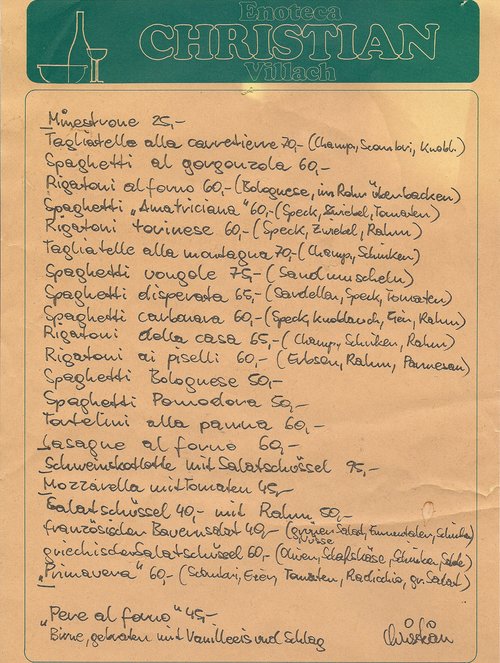 Enoteca
CHRISTIAN
Villach
Minestrone 25,-
Tagliatelle alla carretiere 70,- (Champ., Scambri, Knobl.)
Spaghetti al gorgonzola 60,-
Rigatoni al forno 60,- (Bolognese, im Rahm überbacken)
Spaghetti „Amatriciana" 60,- (Speck, Zwiebel, Tomaten)
Rigatoni torinese 60,- (Speck, Zwiebel, Rahm)
Tagliatelle alla montagna 70,- (Champ., Schinken)
Spaghetti vongole 75,- (Sandmuscheln)
Spaghetti disperata 65,- (Sardellen, Speck, Tomaten)
Spaghetti carbonara 60,- (Speck, Knoblauch, Eier, Rahm)
Rigatoni della casa 65,- (Champ., Schinken, Rahm)
Rigatoni ai piselli 60,- (Erbsen, Rahm, Parmesan)
Spaghetti Bolognese 50,-
Spaghetti Pomodora 50,-
Tortelini alla panna 60,-
Lasagne al forno 60,-
Schweinskotlotte mit Salatschüssel 95,-
Mozzarella mit Tomaten 45,-
Salatschüssel 40,- mit Rahm 50,-
französischen Bauernsalat 40,- (grünen Salat, Emmentaler, Schinken,
Nüsse
griechischen Salatschüssel 60,- (Oliven, Schafskäse, Schinken,
„Primavera" 60,- (Scambri, Eier, Tomaten, Radicchio, gr. Salat)
„Pere al forno" 45,-
Birne, gebraten mit Vanilleeis und Schlag
Christian